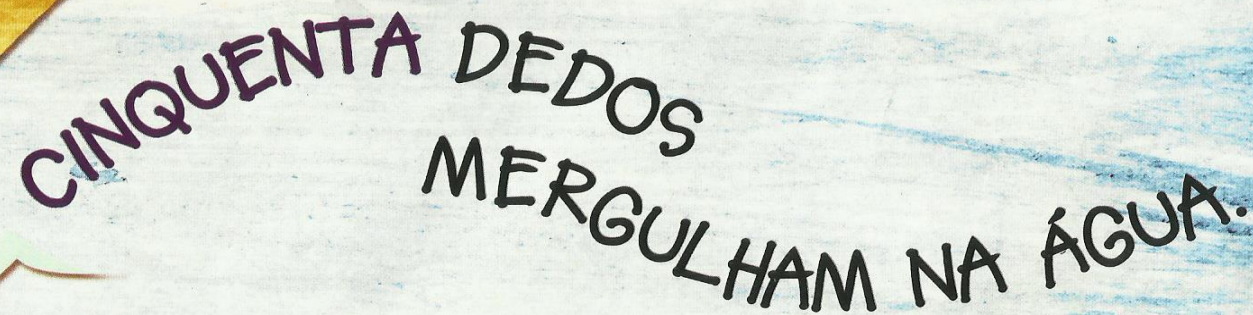 CINQUENTA DEDOS
MERGULHAM NA ÁGUA.